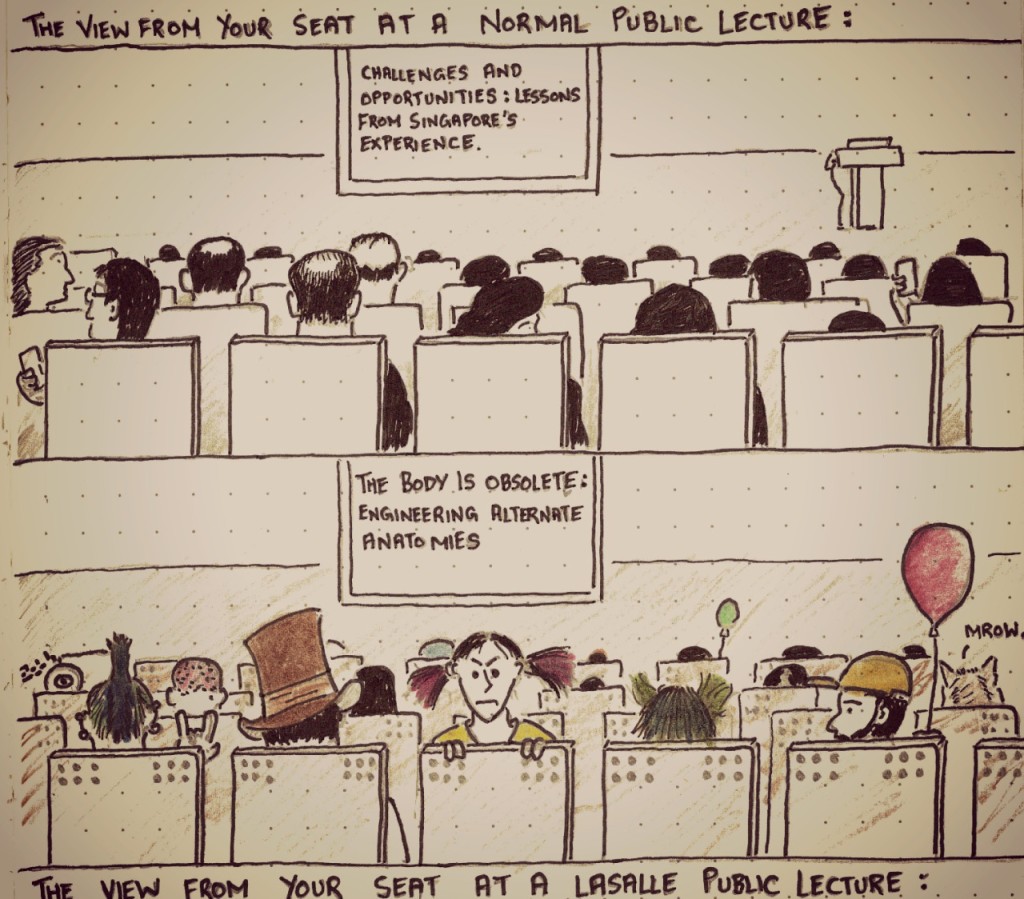 THE VIEW FROM YOUR SEAT AT A NORMAL PUBLIC LECTURE:
CHALLENGES AND
OPPORTUNITIES: LESSONS
FROM SINGAPORE'S
EXPERIENCE.
THE BODY IS OBSOLETE:
ENGINEERING ALTERNATE
ANATOMIES
MROW.
THE VIEW FROM YOUR SEAT AT A LASALLE PUBLIC LECTURE: